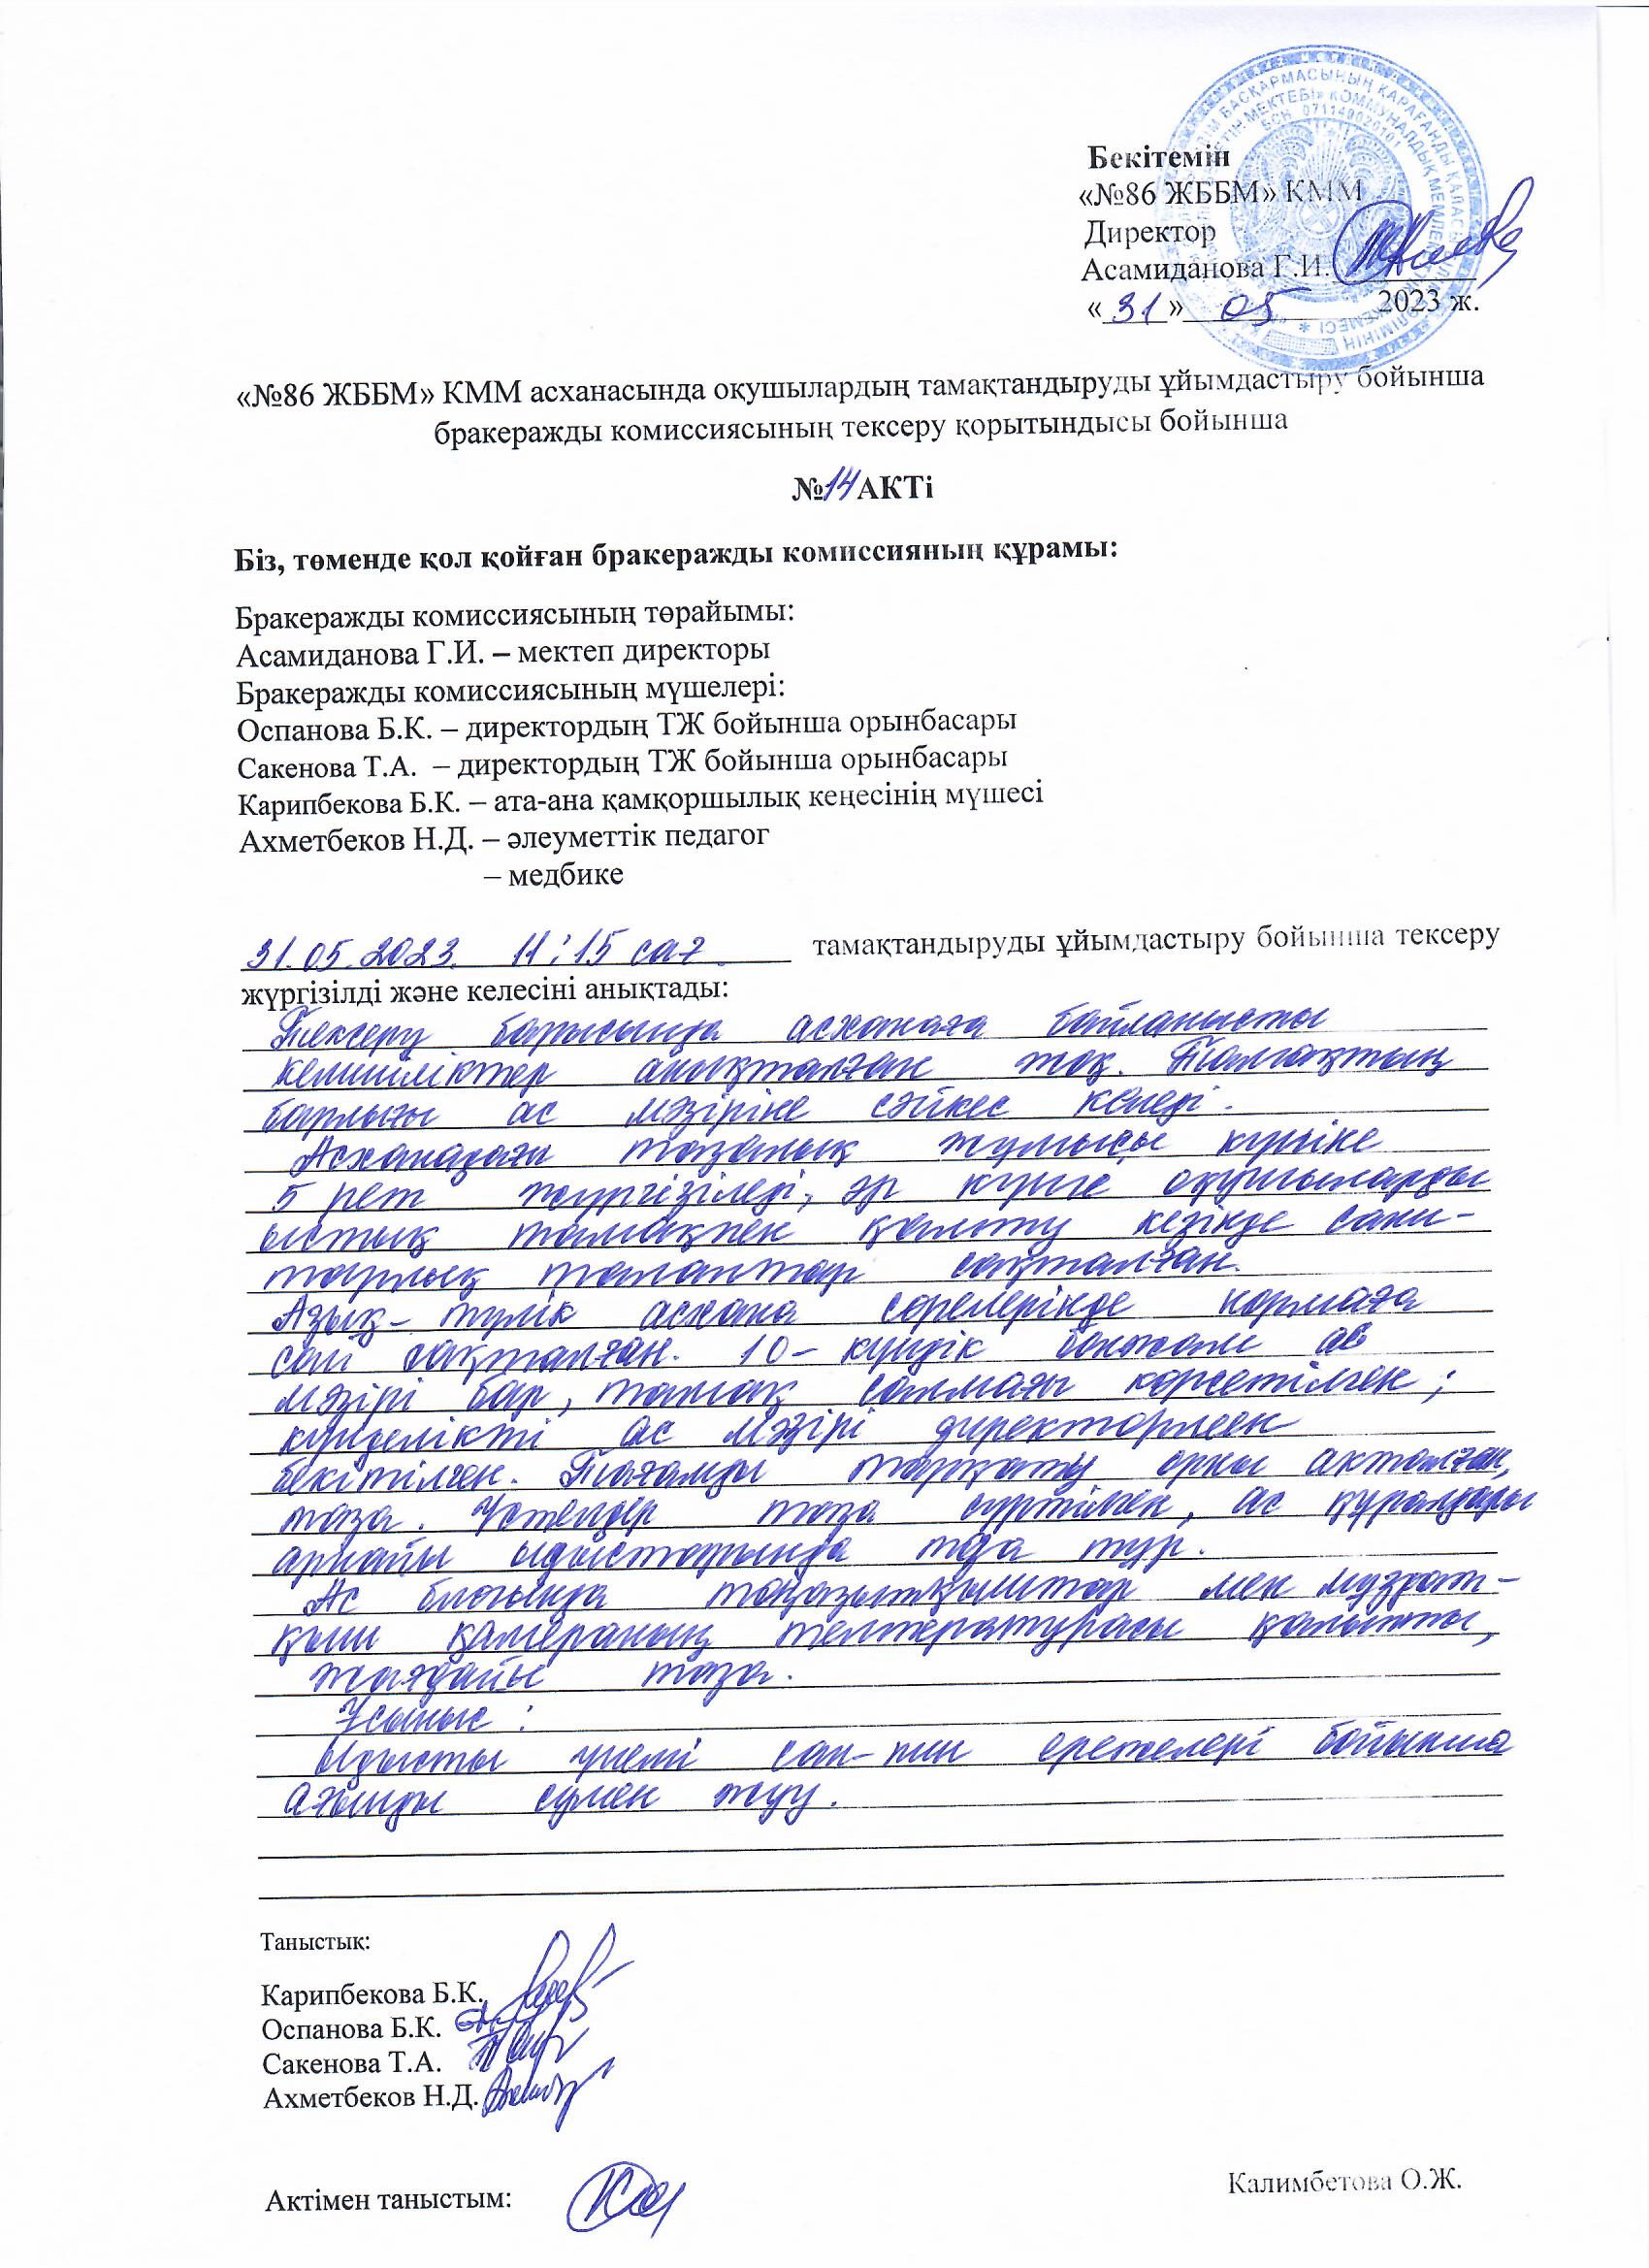 Бекітемін
«№86 ЖББМ» КММ
Директор
Асамиданова Г.И.
«31» 05 2023 ж.
БСН 071140020101
«№86 ЖББМ» КММ асханасында оқушылардың тамақтандыруды ұйымдастыру бойынша
бракеражды комиссиясының тексеру қорытындысы бойынша
№14 АКТі
Біз, төменде қол қойған бракеражды комиссияның құрамы:
Бракеражды комиссиясының төрайымы:
Асамиданова Г.И. – мектеп директоры
Бракеражды комиссиясының мүшелері:
Оспанова Б.К. – директордың ТЖ бойынша орынбасары
Сакенова Т.А. – директордың ТЖ бойынша орынбасары
Карипбекова Б.К. – ата-ана қамқоршылық кеңесінің мүшесі
Ахметбеков Н.Д. – әлеуметтік педагог
– медбике
31.05.2023. 11:15 сағ. тамақтандыруды ұйымдастыру бойынша тексеру
жүргізілді және келесіні анықтады:
Тексеру барысында асханаға байланысты
кемшіліктер анықталған жоқ. Тамақтың
барлығы ас мәзіріне сәйкес келеді.
Асханадағы тазалық жұмысы күніне
5 рет жүргізіледі, әр күнге оқушыларды
ыстық тамақпен қамту кезінде сани-
тарлық талаптар сақталған.
Азық-түлік асхана сөрелерінде нормаға
сай сақталған. 10-күндік болжам ас
мәзірі бар, тамақ салмағы көрсетілген;
күнделікті ас мәзірі директормен
бекітілген. Тағамды тарқату орны акталған,
таза. Үстелдер таза сүртілген, ас құралдары
арнайы ыдыстарында таза тұр.
Ас блогында тоңазытқыштар мен мұздат-
қыш камераның температурасы қалыпты,
жағдайы таза.
Ұсыныс:
Ыдысты үнемі сан-пин ережелері бойынша
ағынды сумен жуу.
Таныстық:
Карипбекова Б.К.
Оспанова Б.К.
Сакенова Т.А.
Ахметбеков Н.Д.
Актімен таныстым: Калимбетова О.Ж.